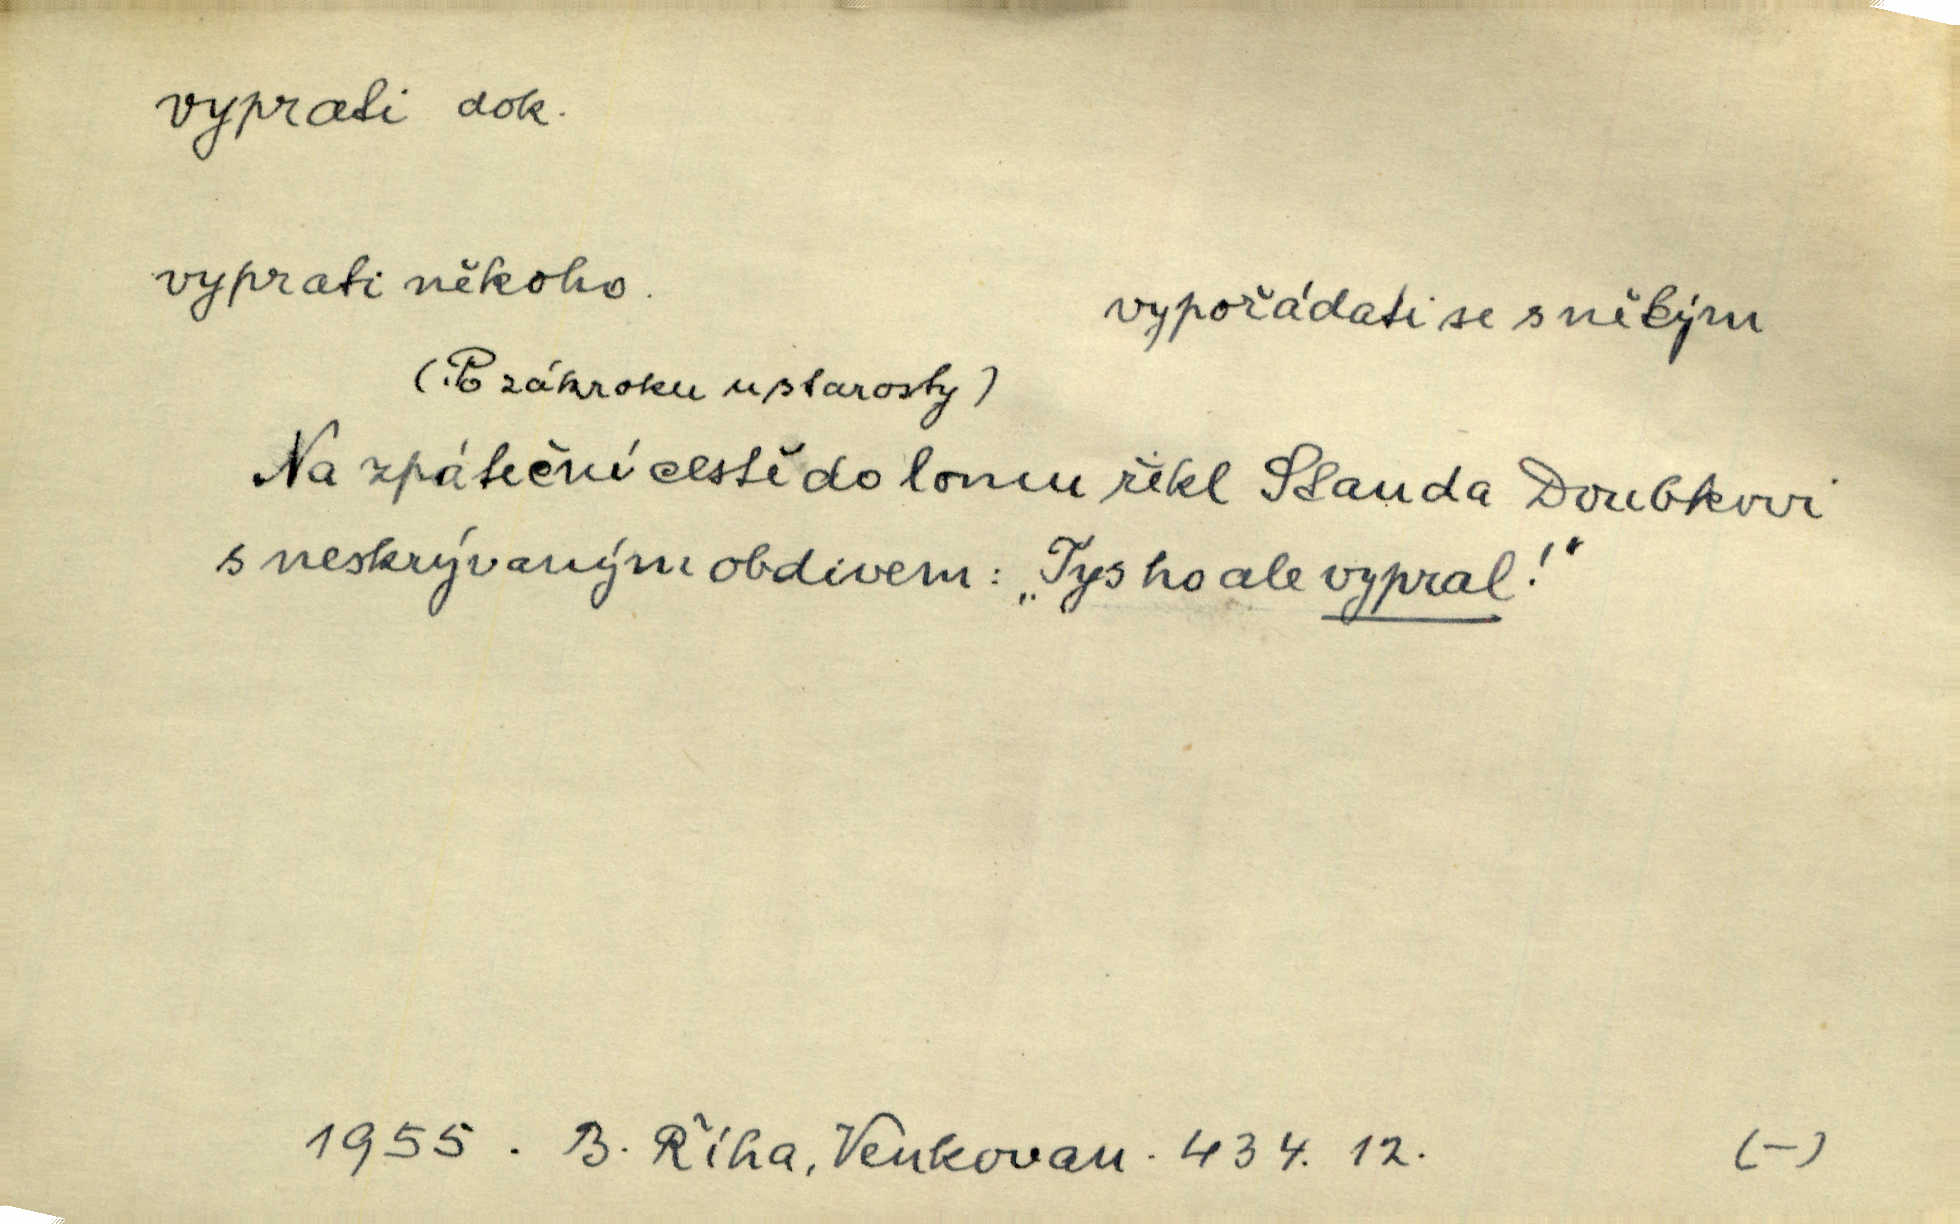 vyprati dok.
vyprati někoho.
vypořádati se s někým
(Po zákroku u starosty)
Na zpáteční cestě do lomu řekl Standa Doubkovi
s neskrývaným obdivem: „Tys ho ale vypral!"
1955. B. Říha, Venkovan. 434. 12. (-)